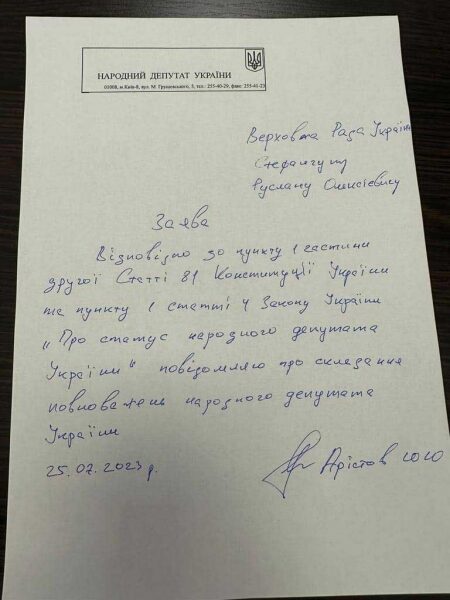 НАРОДНИЙ ДЕПУТАТ УКРАЇНИ
01008, м.Київ-8, вул. М. Грушевського, 5, тел.: 255-40-29, факс: 255-41-23
Верховна Рада України
Стефанчуку
Руслану Олексієвичу
Заява
Відповідно до пункту 1 частини
другої Статті 81 Конституції України
та пункту 1 статті 4 Закону України
„Про статус народного депутата
України“ повідомляю про складання
повноважень народного депутата
України
25.07.2023 р.
Арістов Ю Ю